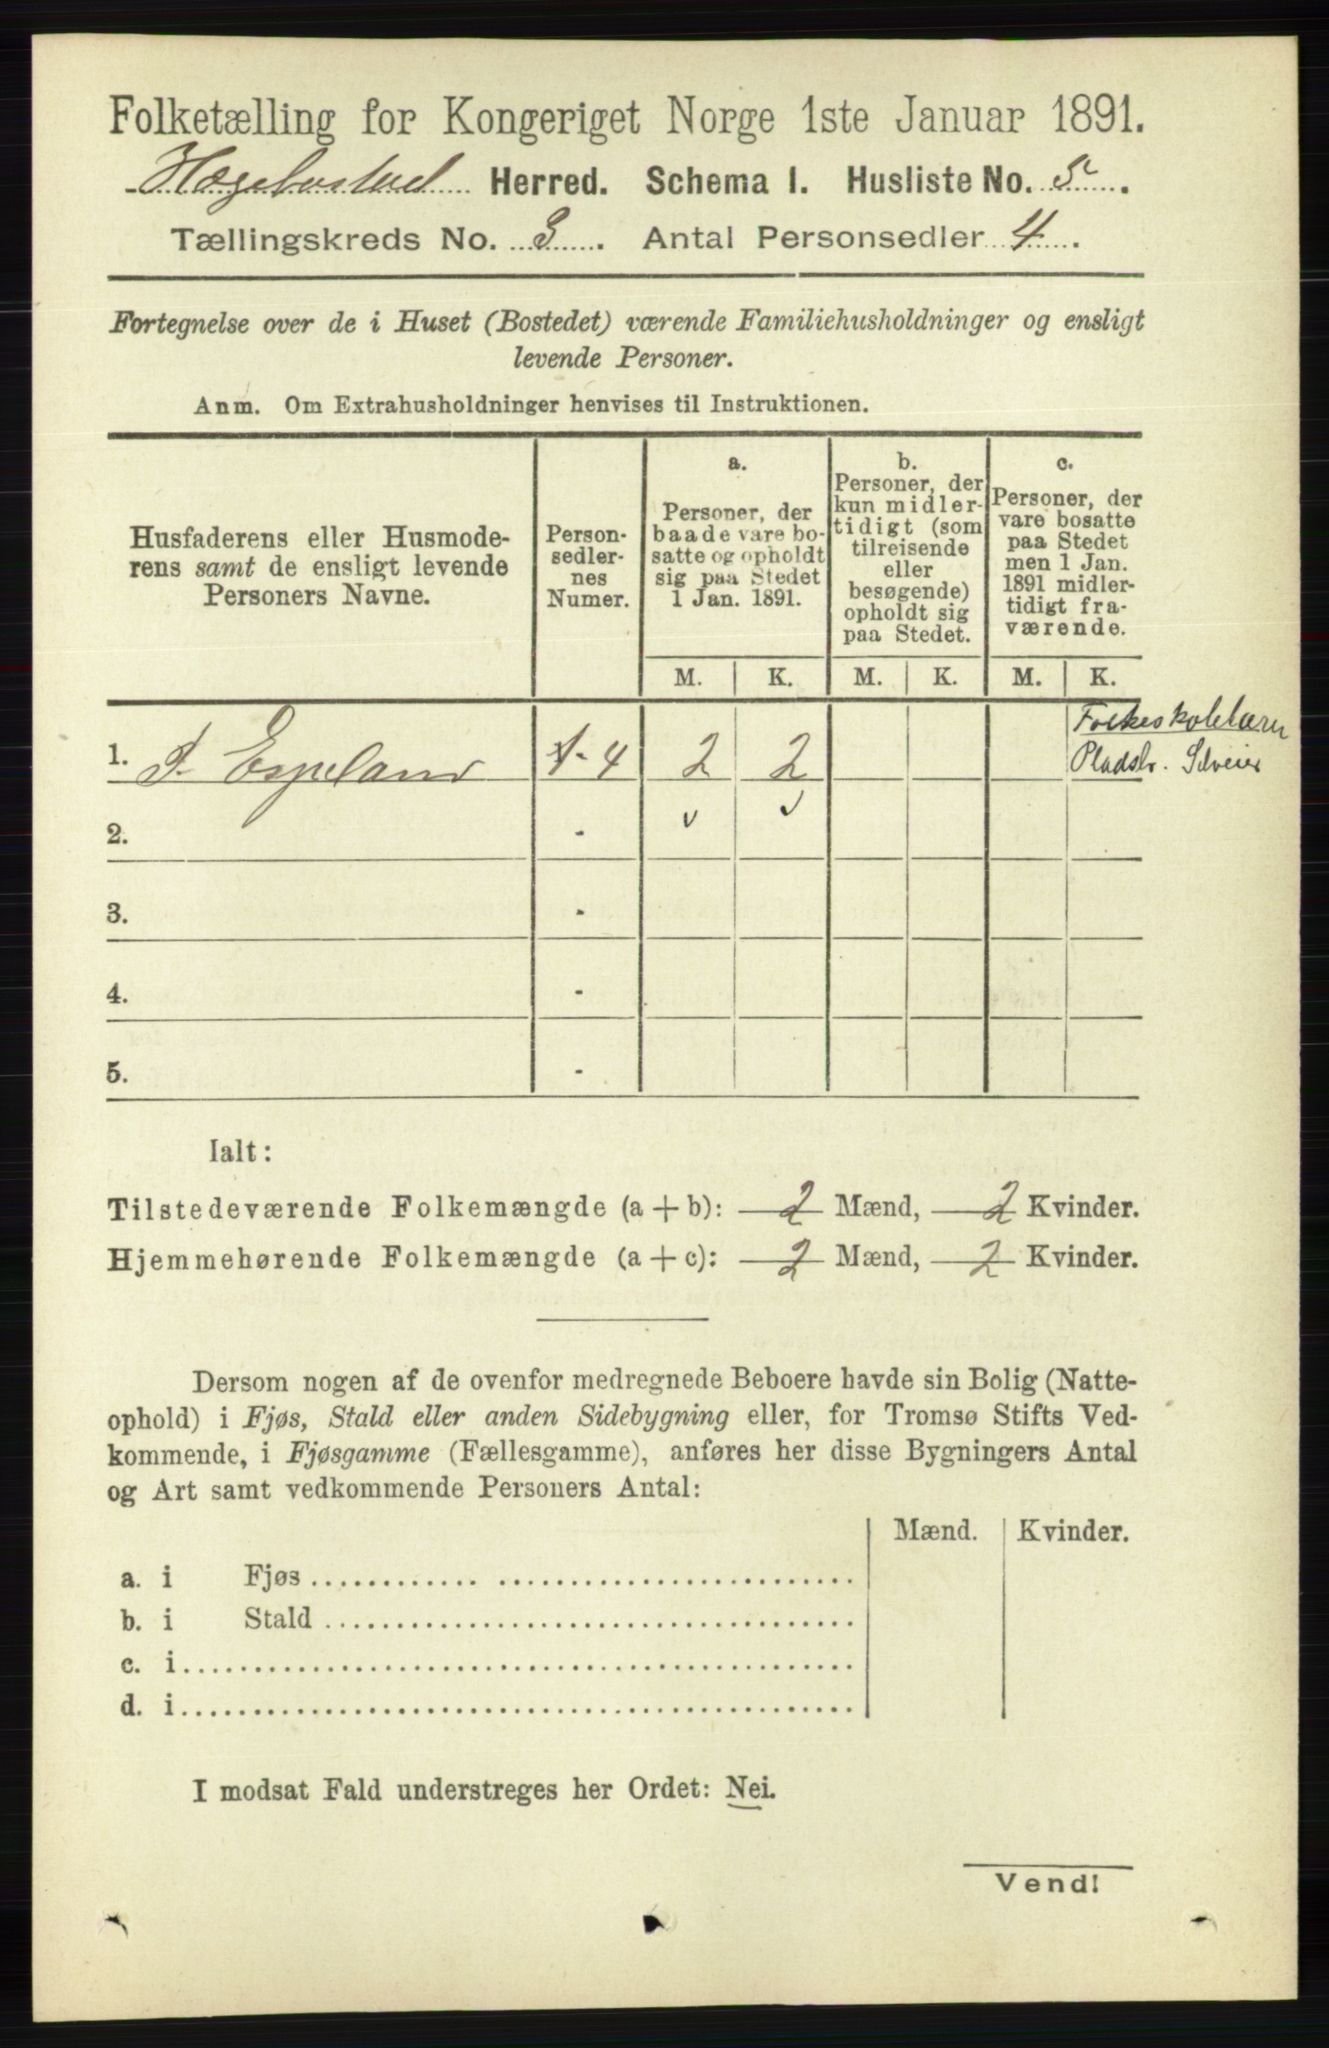 Folketælling for Kongeriget Norge 1ste Januar 1891.
Hægebostad Herred. Schema I. Husliste No. 5.
Tællingskreds No. 3. Antal Personsedler 4.
Fortegnelse over de i Huset (Bostedet) værende Familiehusholdninger og ensligt
levende Personer.
Anm. Om Extrahusholdninger henvises til Instruktionen.
Husfaderens eller Husmode-
rens samt de ensligt levende
Personers Navne.
Person-
sedler-
nes
Numer.
a.
Personer, der
baade vare bo-
satte og opholdt
sig paa Stedet
1 Jan. 1891.
b.
Personer, der
kun midler-
tidigt (som
tilreisende
eller
besøgende)
opholdt sig
paa Stedet.
c.
Personer, der
vare bosatte
paa Stedet
men 1 Jan.
1891 midler-
tidigt fra-
værende.
M. K. M. K. M. K.
Folkeskolelærer
1. Espeland 1-4 2 2 Pladsbr. Selveier
2. -
3. -
4. -
5. -
Ialt:
Tilstedeværende Folkemængde (a + b): 2 Mænd, 2 Kvinder.
Hjemmehørende Folkemængde (a + c): 2 Mænd, 2 Kvinder.
Dersom nogen af de ovenfor medregnede Beboere havde sin Bolig (Natte-
ophold) i Fjøs, Stald eller anden Sidebygning eller, for Tromsø Stifts Ved-
kommende, i Fjøsgamme (Fællesgamme), anføres her disse Bygningers Antal
og Art samt vedkommende Personers Antal:
Mænd. Kvinder.
a. i Fjøs
b. i Stald
c. i
d. i
I modsat Fald understreges her Ordet: Nei.
Vend!